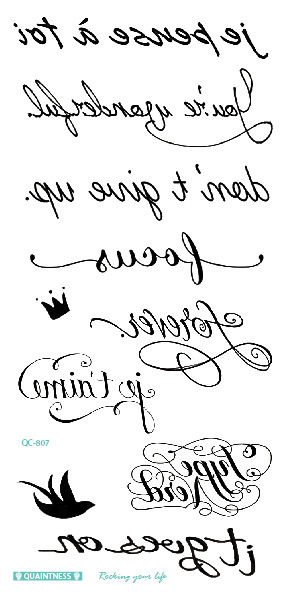 je pense à toi
You're wonderful.
don't give up.
focus
forever.
je t'aime
QC-807
Type
Nerd
it goes on
QUAINTNESS Rocking your life